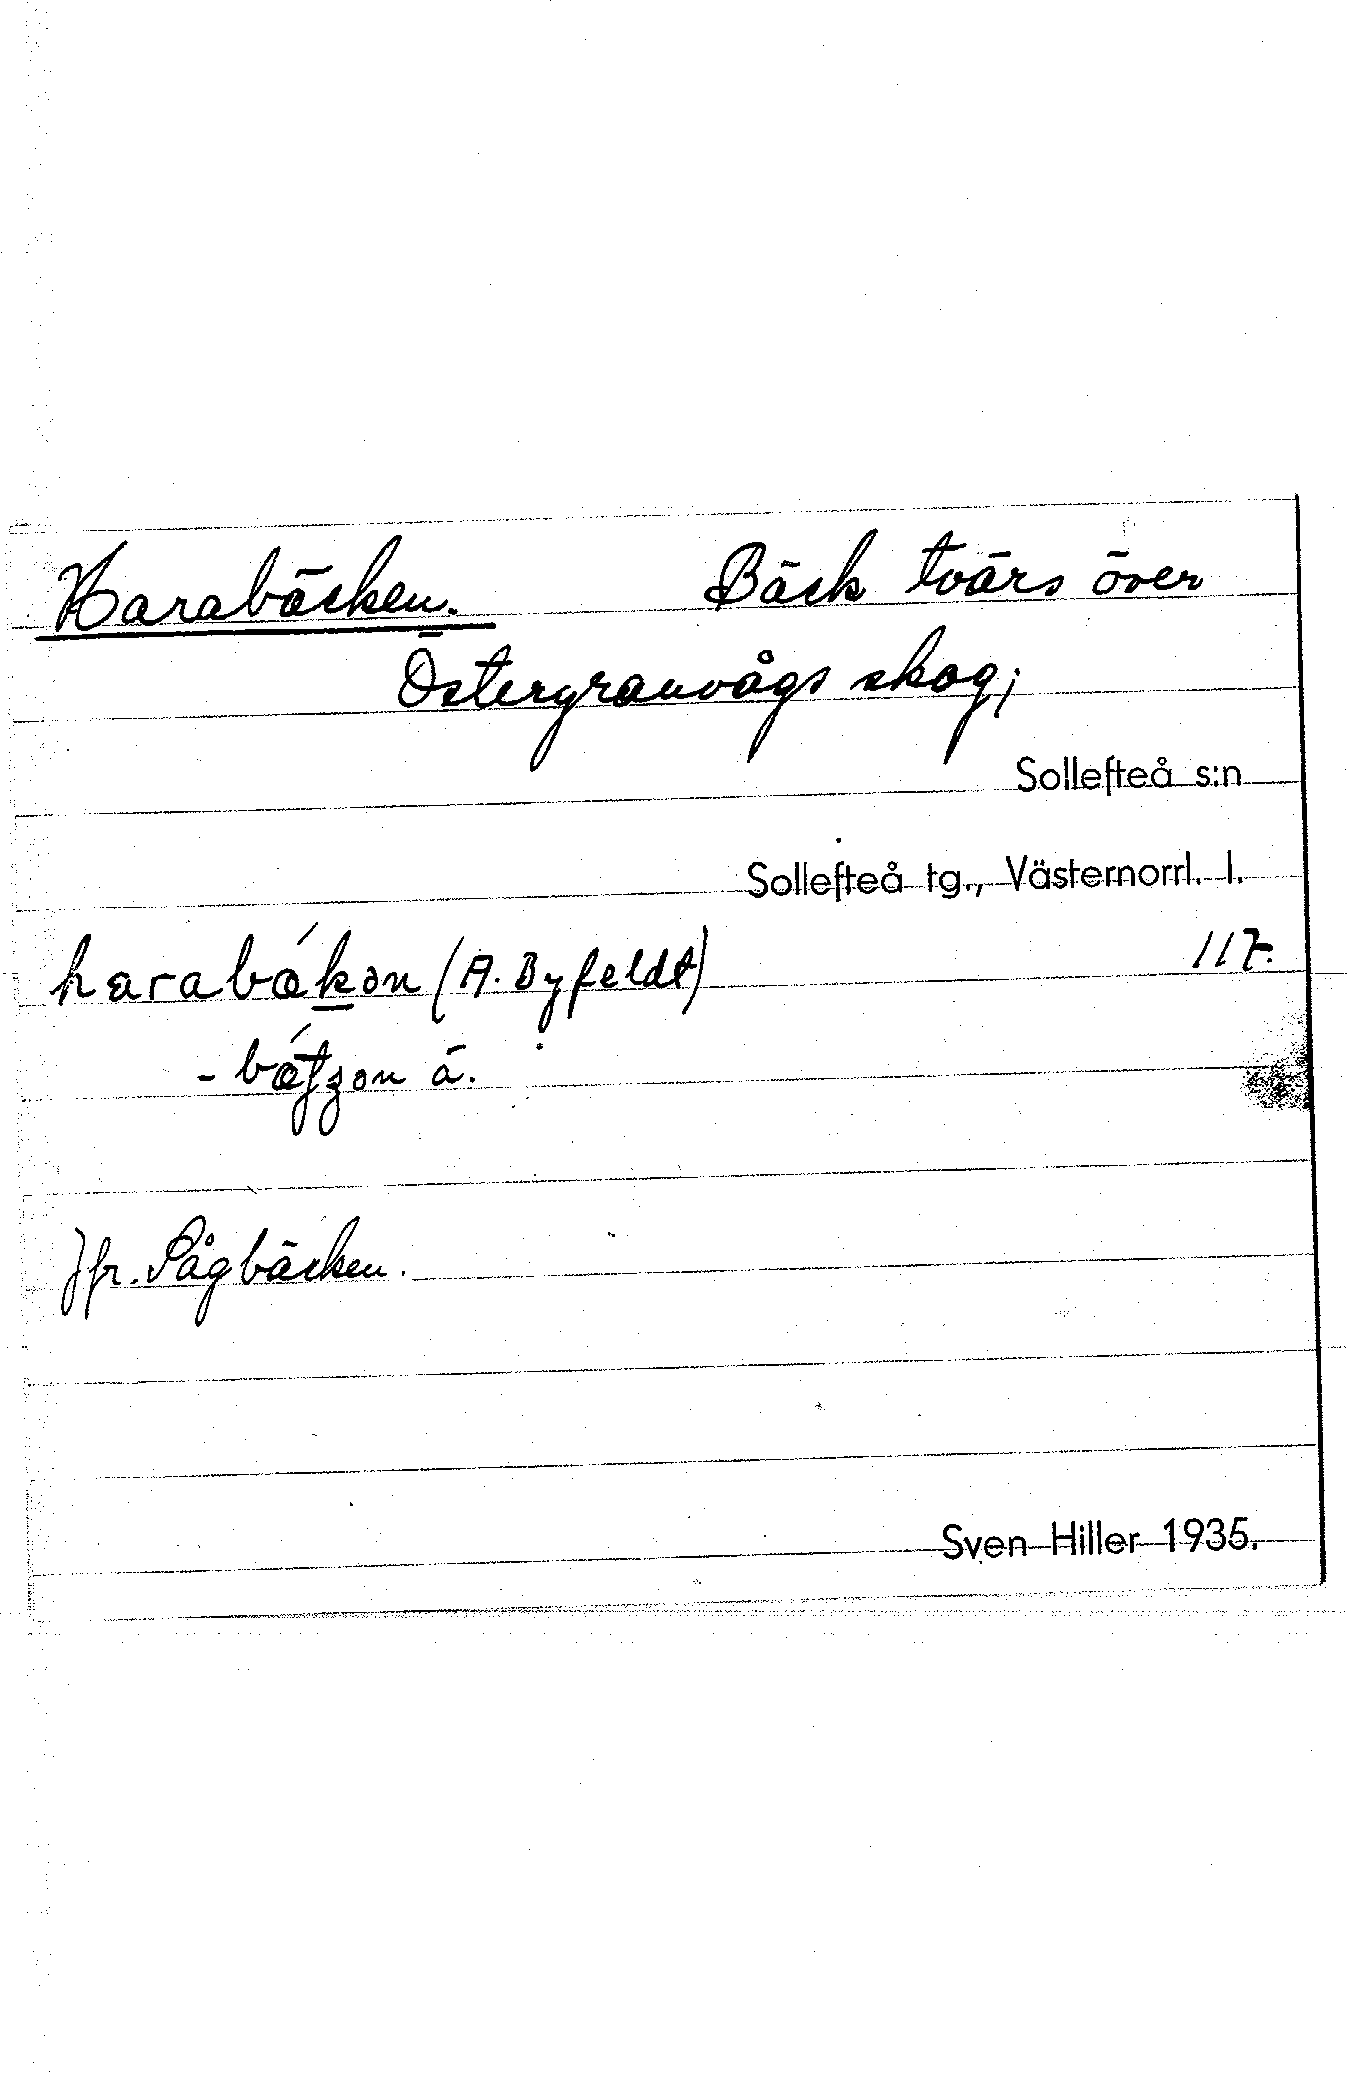 Harabäcken. Bäck tvärs över
Östergranvågs skog;
Sollefteå s:n
Sollefteå tg., Västernorrl. l.
harabǽkən (A. Byfeldt) 117.
ä.
Jfr. Sågbäcken.
Sven Hiller 1935.